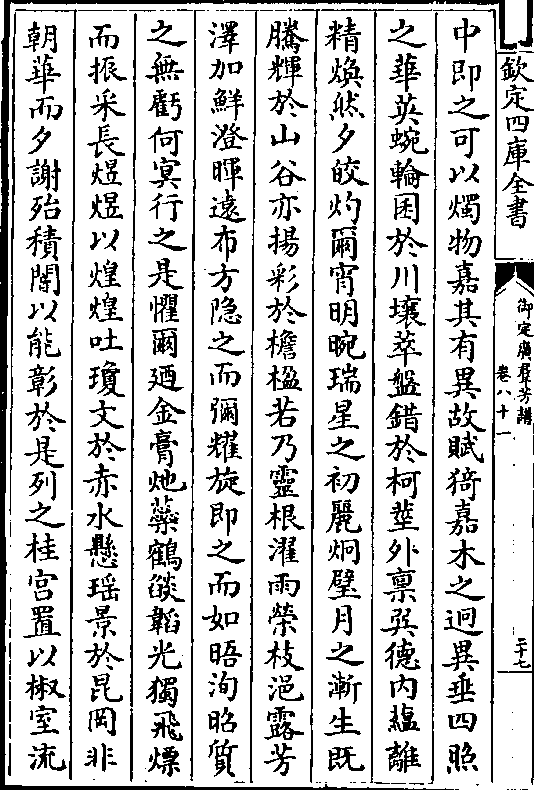 欽定四庫全書
御定廣羣芳譜
卷八十一
二十七
中即之可以燭物嘉其有異故賦猗嘉木之迥異垂四照
之華英蜿輪囷於川壤萃盤錯於柯莖外稟巽德内蘊離
精煥然夕皎灼爾宵明晼瑞星之初麗炯璧月之漸生既
騰輝於山谷亦揚彩於檐楹若乃靈根濯雨榮枝浥露芳
澤加鮮澄暉遠布方隐之而彌耀旋即之而如晤洵昭質
之無虧何冥行之是懼爾廼金膏灺藥鶴燄韜光獨飛熛
而振采長煜煜以煌煌吐瓊文於赤水懸瑶景於昆岡非
朝華而夕謝殆積闇以能彰於是列之桂宮置以椒室流